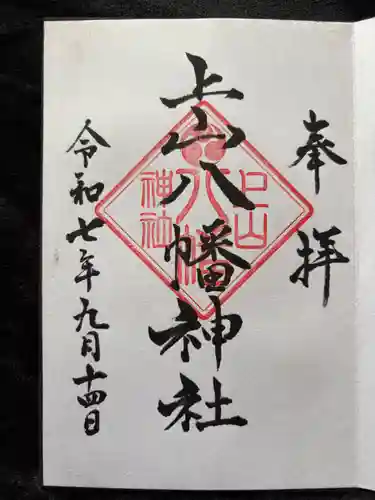 奉拝
上山八幡神社
令和七年九月十四日
上山
八幡
神社